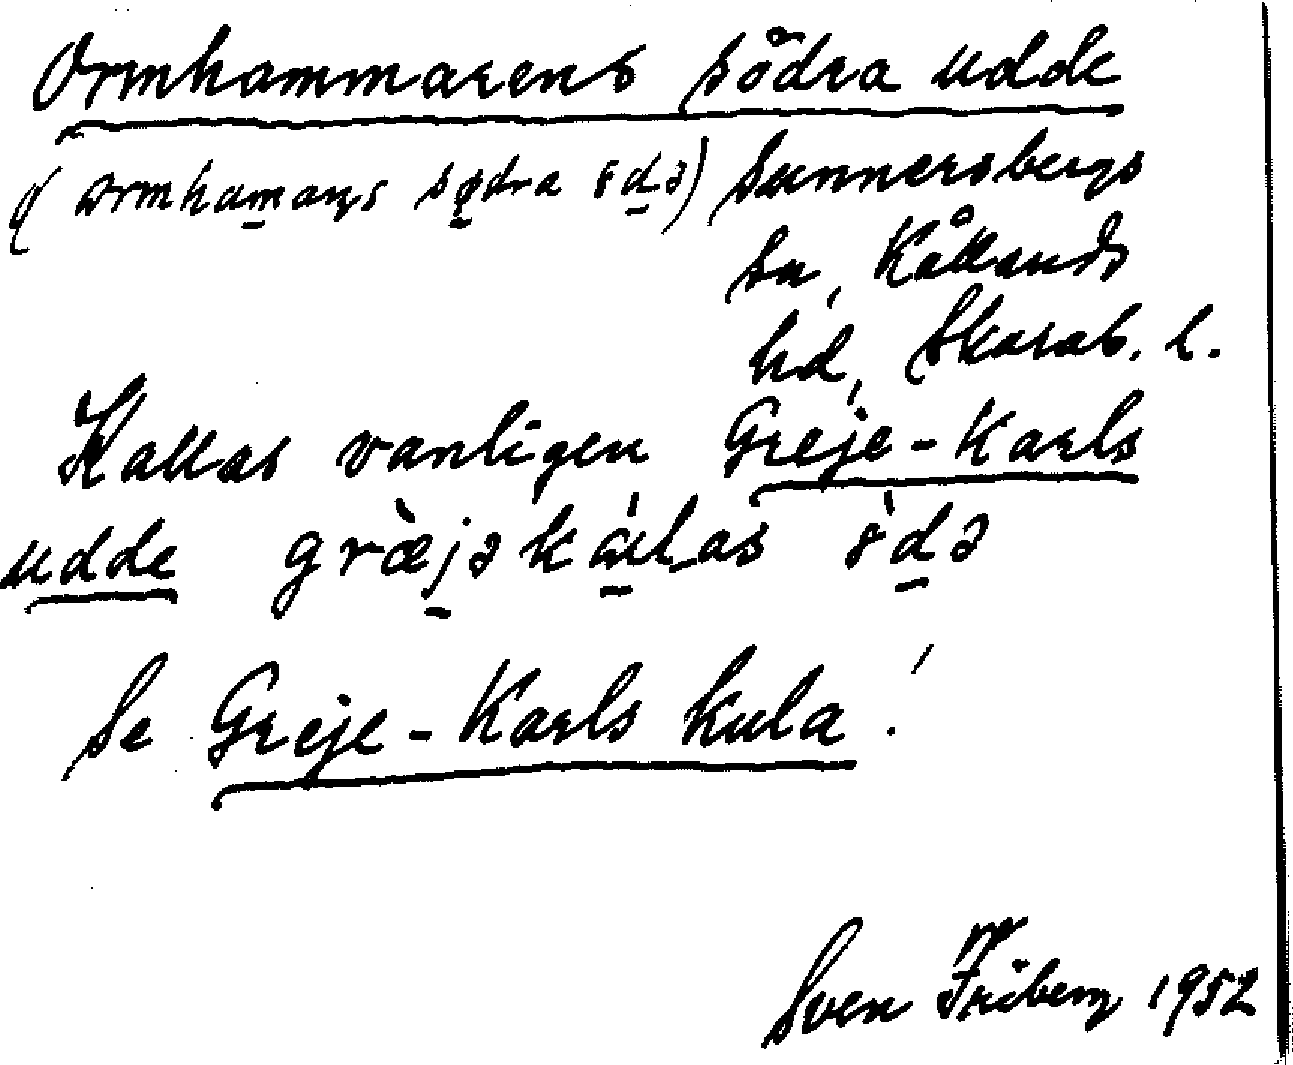 Ormhammarens södra udde
(ormhamaɳs sødra ɞdə) Sunnersbergs
sn, Kållands
hd, Skarab. l.
Kallas vanligen Greje-Karls
udde græ̀jə kálas ɞ̀də
Se Greje-Karls kula!
Sven Friberg 1952